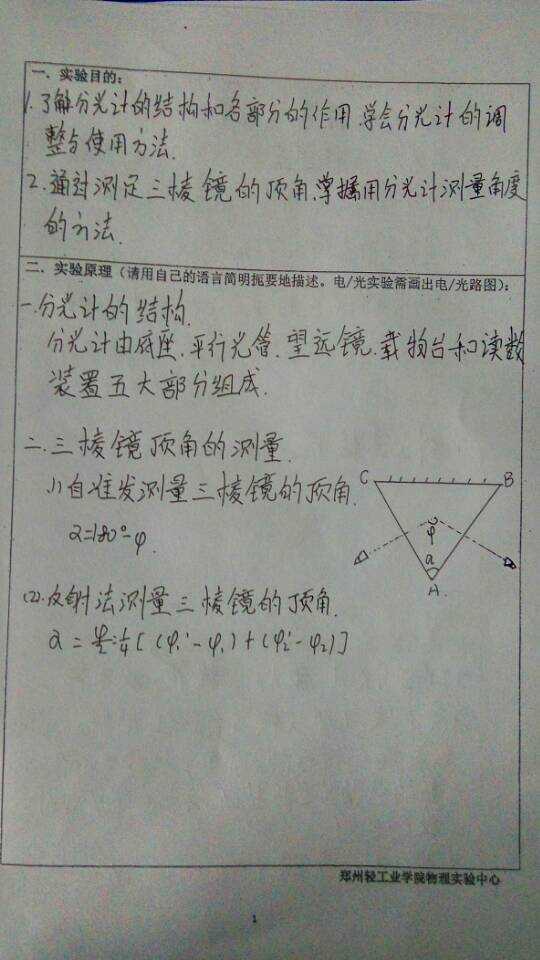 一、实验目的:
1.了解分光计的结构和各部分的作用.学会分光计的调
整与使用方法.
2.通过测定三棱镜的顶角,掌握用分光计测量角度
的方法.
二、实验原理(请用自己的语言简明扼要地描述。电/光实验需画出电/光路图):
一.分光计的结构.
分光计由底座.平行光管.望远镜.载物台和读数
装置五大部分组成.
二.三棱镜顶角的测量.
(1)自准发测量三棱镜的顶角.
α=180°-φ.
C
B
φ
α
A.
(2).反射法测量三棱镜的顶角.
α = φ/2 = 1/4 [(φ₁'-φ₁)+(φ₂'-φ₂)]
郑州轻工业学院物理实验中心
1